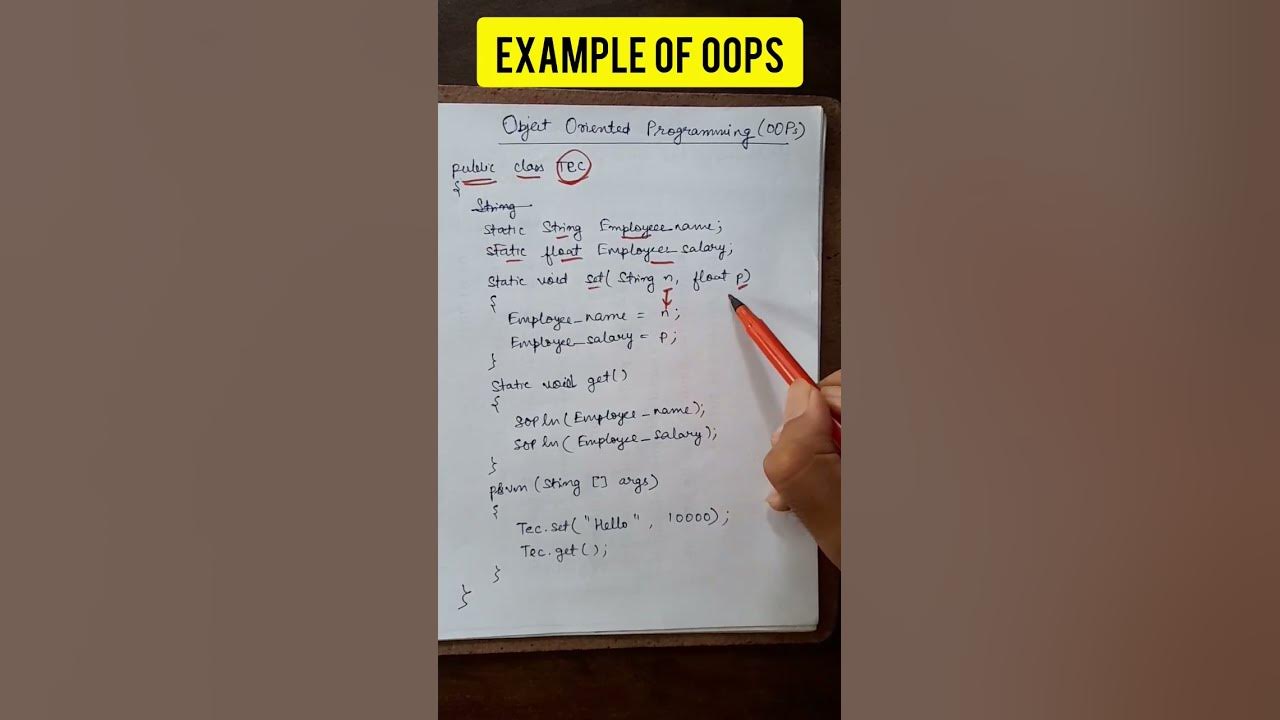 EXAMPLE OF OOPS
Object Oriented Programming (OOPs)
public class Tec
{
String
static String Employee_name;
static float Employee_salary;
static void set( String n, float p)
{
Employee_name = n;
Employee_salary = p;
}
static void get()
{
SOPln (Employee_name);
SOPln ( Employee_salary);
}
psvm (String [] args)
{
Tec.set( "Hello" , 10000);
Tec.get();
}
}